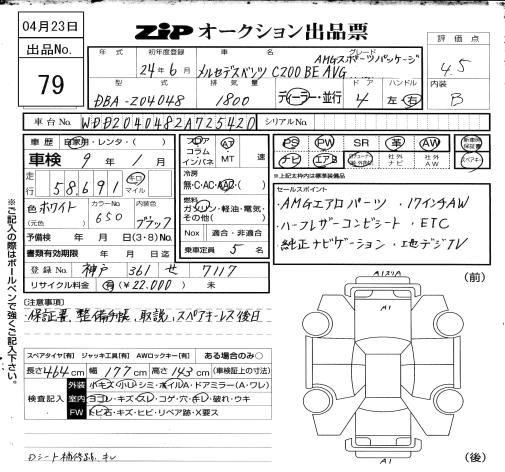 04月23日
出品No.
79
ZIP オークション出品票
評価点
4.5
内装
B
年式 初年度登録 車名 グレード
24年6月 メルセデスベンツ C200 BE AVG AMGスポーツパッケージ
型式 排気量 ドア ハンドル
DBA-204048 1800 ディーラー・並行 4 左・右
車台No. WDD2040482A725420 シリアルNo.
車歴 自家用・レンタ・( )
車検 9年1月
走行 58,691 キロ マイル
色(元色) ホワイト カラーNo. 650 内装色 ブラック
予備検 年 月 日(3・8)No.
書類有効期限 年 月 日迄
登録No. 神戸 361 せ 7117
リサイクル料金 有(¥22,000) 未
フロア コラム インパネ AT MT 速
冷房 無・C・AC・AAC
燃料 ガソリン・軽油・電気・その他( )
Nox 適合・非適合
乗車定員 5 名
PS PW SR 革 AW 新車時保証書
ナビ エアB 社外ナビ 社外AW スペアキー
※上記太枠内は標準装備品
セールスポイント
・AMGエアロパーツ ・17インチAW
・ハーフレザーコンビシート ・ETC
・純正ナビゲーション ・地デジTV
[注意事項]
・保証書、整備手帳、取説、スペアキーレス後日
スペアタイヤ[有] ジャッキ工具[有] AWロックキー[有] ある場合のみ○
長さ 464 cm 幅 177 cm 高さ 143 cm (車検証上の寸法)
検査記入
外装 小キズ・小U・シミ・ホイルA・ドアミラー(A・ワレ)
室内 ヨゴレ・キズ・スレ・コゲ・穴・キレ・破れ・ウキ
FW トビ石・キズ・ヒビ・リペア跡・X要ス
Dシート補修跡、キレ
※ご記入の際はボールペンで強くご記入下さい。
(前)
A1
A1
(後)